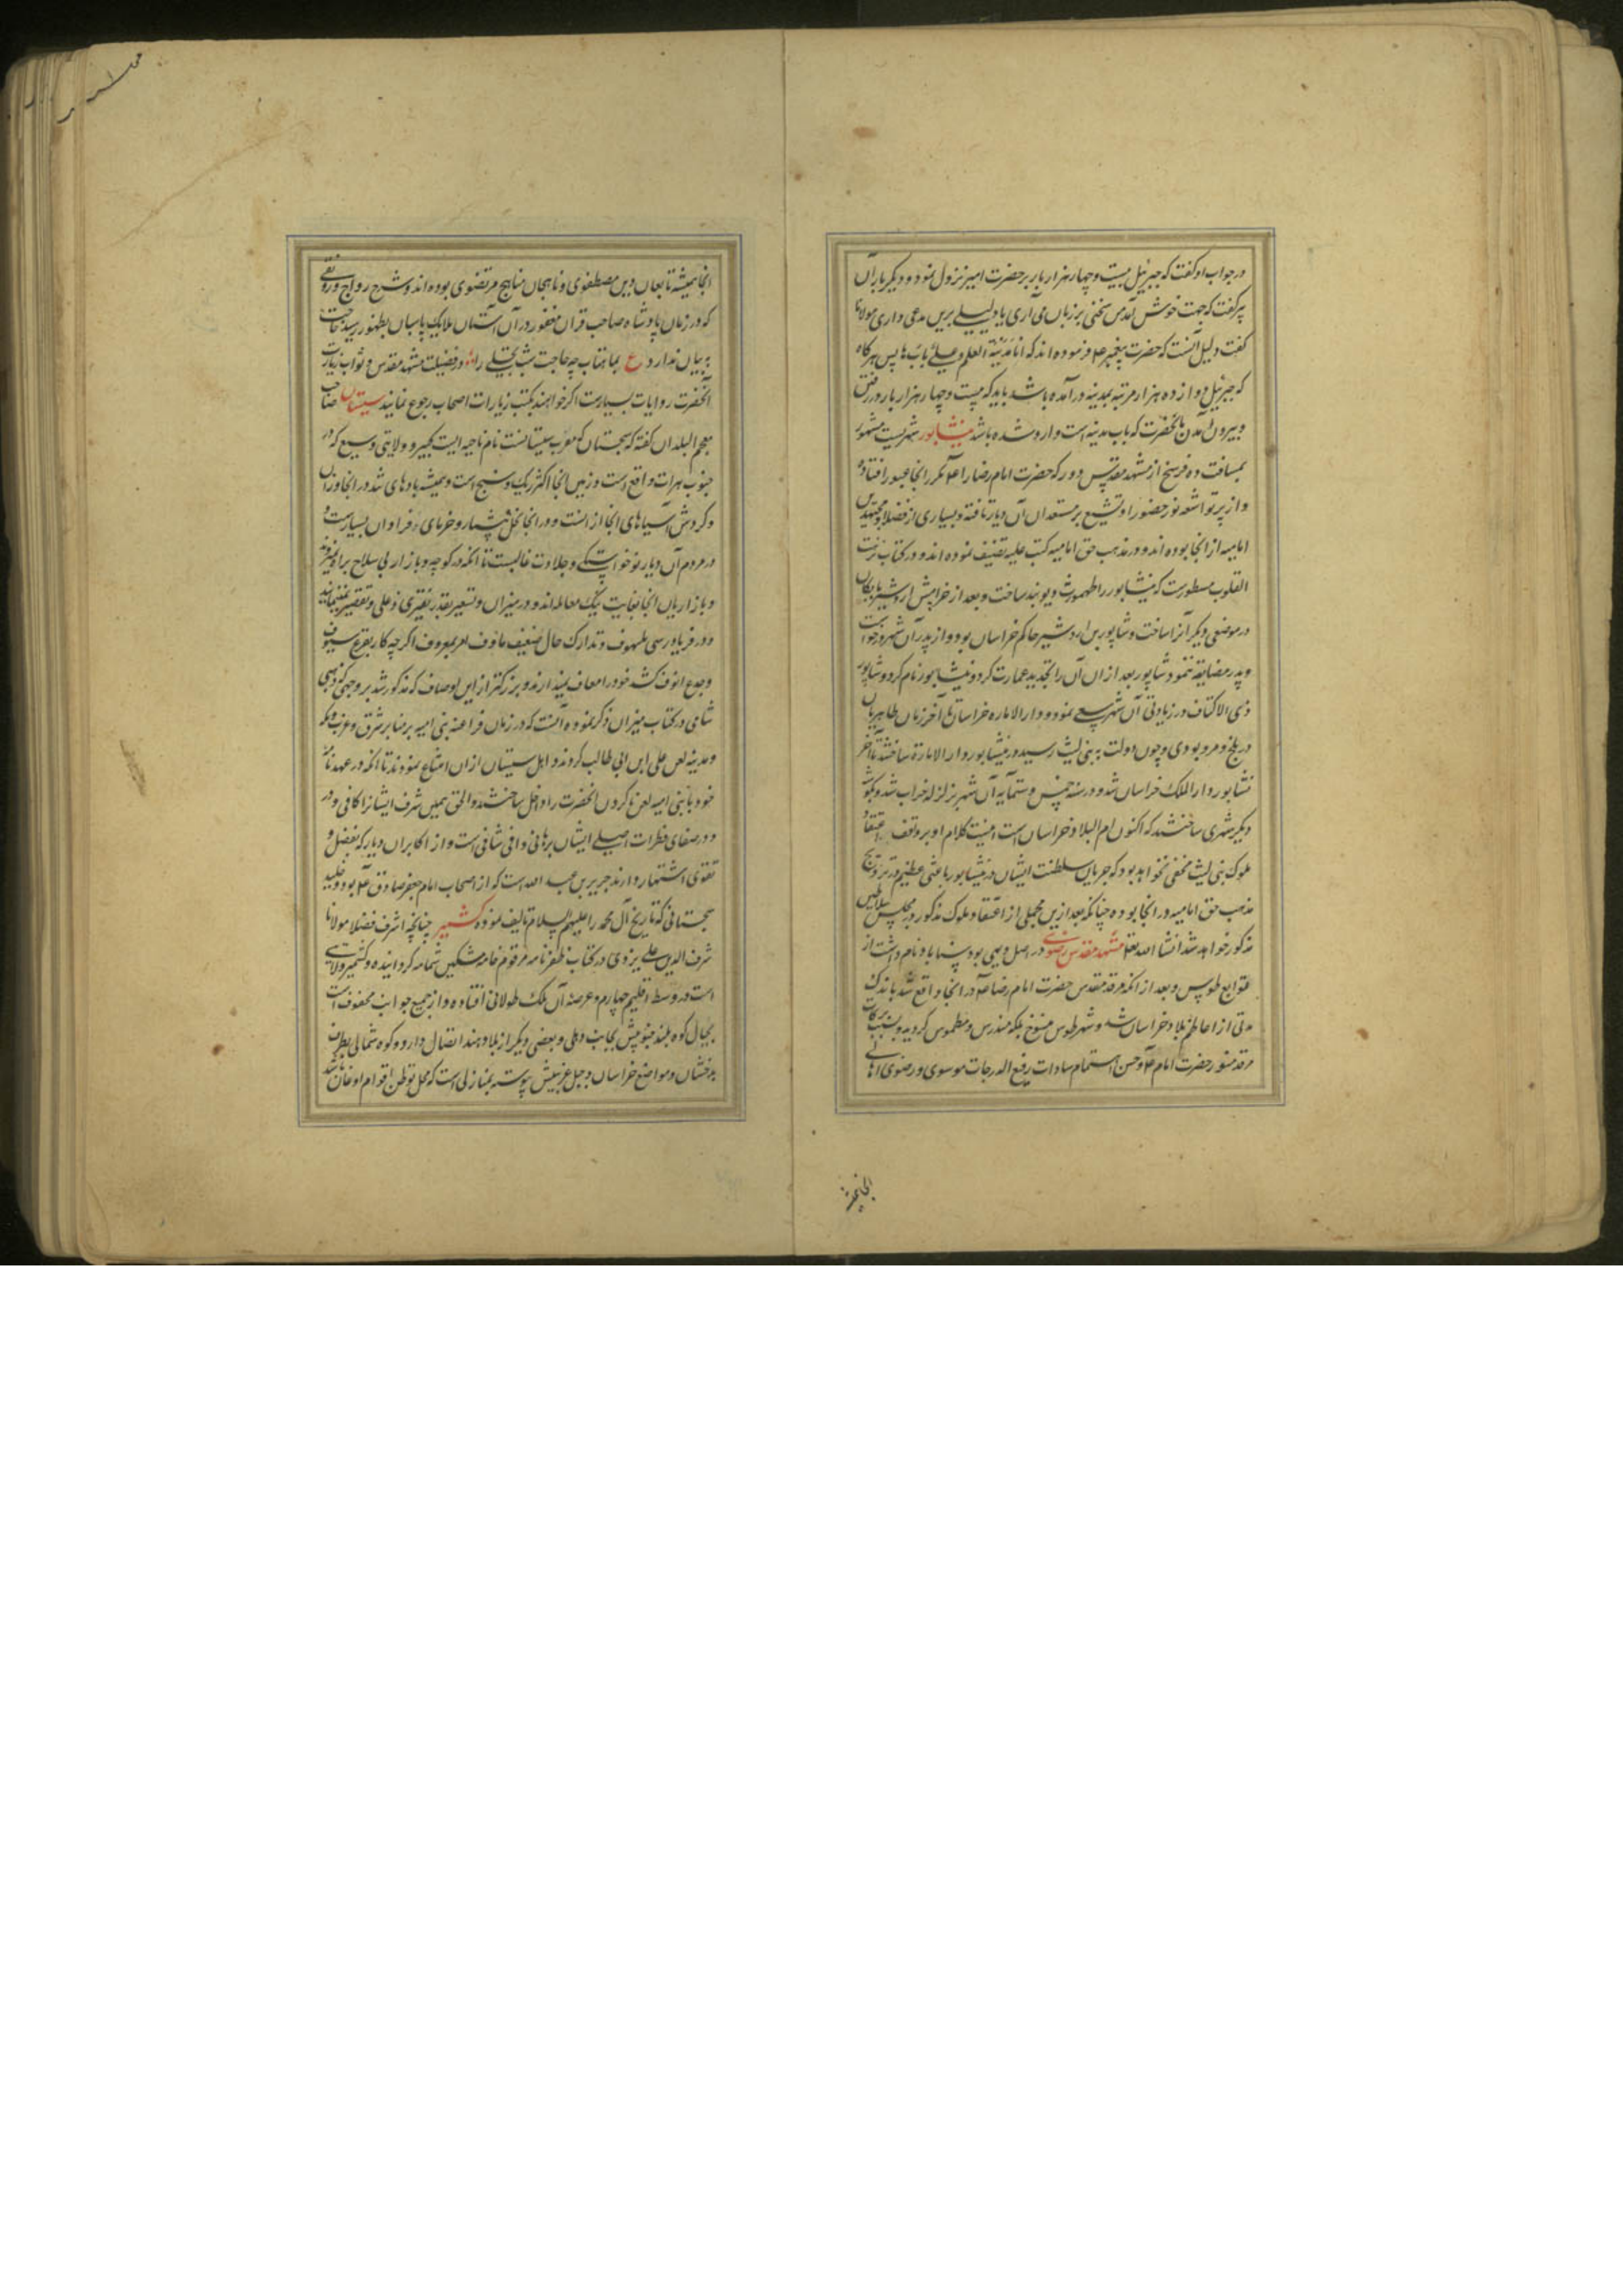 درجواب او گفت که جبرئیل بیست و چهار هزار بار بر حضرت امیر نزول نمود و دیگر بار آن
پیر گفت که جهت خوش آمد من سخنی بر زبان می آری یا دلیلی برین مدعی داری مولانا
گفت دلیل آنست که حضرت پیغمبر ع فرموده اند که انا مدینة العلم و علی بابها پس هرگاه
که جبرئیل دوازده هزار مرتبه بمدینه درآمده باشد باید که بیست و چهار هزار بار در رفتن
و بیرون آمدن بانحضرت که باب مدینه است وارد شده باشد نیشابور شهریست مشهور
بمسافت ده فرسخ از مشهد مقدس دور که حضرت امام رضا را ع مکرر انجا عبور افتاده
و از پرتو اشعه نور حضور او تشیع بر مستعدان آن دیار تافته و بسیاری از فضلا و مجتهدین
امامیه از انجا بوده اند و در مذهب حق امامیه کتب علیه تصنیف نموده اند و در کتاب نزهت
القلوب مسطورست که نیشابور را طهمورث دیوبند ساخت و بعد از خرابیش اردشیر بابکان
در موضعی دیگر آنرا ساخت و شاپور بن اردشیر حاکم خراسان بود و از پدر آن شهر درخواست
و پدر مضایقه نمود شاپور بعد از ان آن را تجدید عمارت کرد و نیشابور نام کرد و شاپور
ذی الاکتاف در زیادتی آن شهر سعی نمود و دار الاماره خراسان تا آخر زمان طاهریان
در بلخ و مرو بودی و چون دولت به بنی لیث رسید در نیشابور دار الامارة ساختند تا آخر
نشابور دار الملک خراسان شد و در سنه خمس و ستمایه آن شهر بزلزله خراب شد و بگوشه
دیگر شهری ساختند که اکنون ام البلاد خراسان است اینست کلام او بر واقف اعتقاد
ملوک بنی لیث مخفی نخواهد بود که جریان سلطنت ایشان در نیشابور باعثی عظیم در ترویج
مذهب حق امامیه در انجا بوده چنانکه بعد ازین مجملی از اعتقاد ملوک مذکور در مجلس سلاطین
مذکور خواهد شد انشا الله تعالی مشهد مقدس رضوی در اصل دیهی بود سناباد نام داشت از
توابع طوس و بعد از انکه مرقد مقدس حضرت امام رضا ع در انجا واقع شد باندک
مدتی از اعاظم بلاد خراسان شد و شهر طوس منسوخ بلکه مندرس و مطموس گردید و بسبب برکات
مرقد منور حضرت امام ع و حسن اهتمام سادات رفیع الدرجات موسوی و رضوی اهالی
انجا همیشه
انجا همیشه تابعان دین مصطفوی و ناهجان مناهج مرتضوی بوده اند و شرح رواج و رونقی
که در زمان پادشاه صاحب قران مغفور در آن آستان ملایک پاسبان بظهور رسید حاجت
به بیان ندارد ع بماهتاب چه حاجت شب تجلی را و در فضیلت مشهد مقدس و ثواب زیارت
آنحضرت روایات بسیارست اگر خواهند بکتب زیارات اصحاب رجوع نمایند سیستان صاحب
معجم البلدان گفته که سجستان که معرب سیستانست نام ناحیه ایست کبیر و ولایتی وسیع که در
جنوب هرات واقع است و زمین انجا اکثر ریک و سنج است و همیشه بادهای تند در انجا وزان
و گردش آسیاهای انجا از انست و در انجا نخل بیشمار و خرمای فراوان بسیارست و
در مردم آن دیار نوخواستگی و جلادت غالبست تا انکه در کوچه و بازار بی سلاح برا نمیروند
و بازاریان انجا بغایت نیک معامله اند و در میزان و تسعیر بقدر نقیری دغلی و تقصیر نمینمایند
و در فریادرسی ملهوف و تدارک حال ضعیف ماوف امر بمعروف اگرچه کار بقرع سیوف
و جدع انوف کشد خود را معاف نمیدارند و بزرگتر از این اوصاف که مذکور شد بر وجهی که ذهبی
شامی در کتاب میزان ذکر نموده آنست که در زمان فراعنه بنی امیه بر منابر شرق و غرب و مکه
و مدینه لعن علی ابن ابی طالب کردند و اهل سیستان از ان امتناع نمودند تا انکه در عهدنامه
خود با بنی امیه لعن ناکردن انحضرت را داخل ساختند و الحق همین شرف ایشانرا کافی و در
و در صفای فطرات اصلی ایشان برهانی وافی شافی است و از اکابر ان دیار که بفضل و
تقوی اشتهار دارند جریر بن عبد الله است که از اصحاب امام جعفر صادق ع بود و خلید
سجستانی که تاریخ آل محمد را علیهم السلام تالیف نموده کشمیر چنانچه اشرف فضلا مولانا
شرف الدین علی یزدی در کتاب ظفرنامه مرقوم خامه مشکین شمامه گردانیده و کشمیر ولایتی
است در وسط اقلیم چهارم و عرصه آن ملک طولانی افتاده و از جمیع جوانب محفوف است
بجبال کوه بلند جنوبیش بجانب دهلی و بعضی دیگر از بلاد هند اتصال دارد و کوه شمالی بطرف
بدخشان و مواضع خراسان و جبل غربیش پیوسته بمنازلی است که محل توطن اقوام اوغان باشد